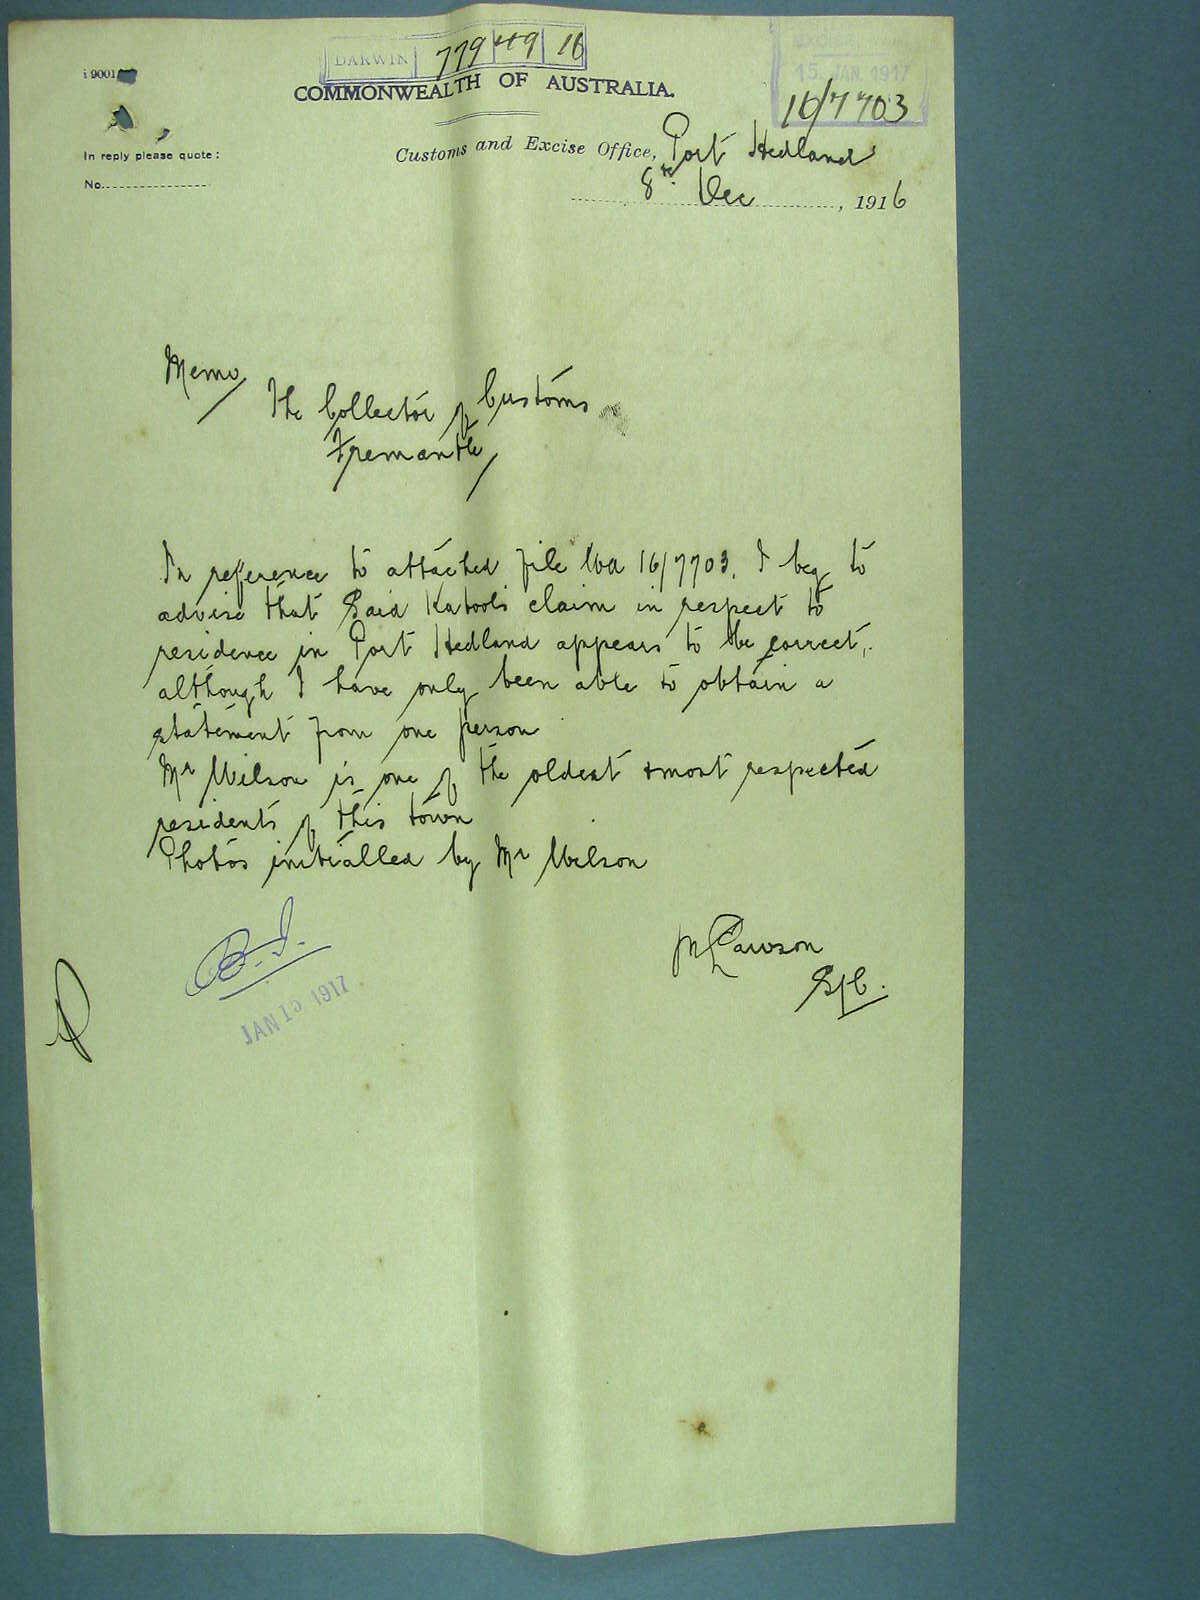 i 9001
DARWIN 779 49 16
COMMONWEALTH OF AUSTRALIA.
15 JAN. 1917
16/7703
In reply please quote:
No.
Customs and Excise Office, Port Hedland
8th Dec, 1916
Memo
The Collector of Customs
Fremantle
In reference to attached file Wa 16/7703. I beg to
advise that Said Kabools claim in respect to
residence in Port Hedland appears to be correct,
although I have only been able to obtain a
statement from one person
Mr Wilson is one of the oldest & most respected
residents of this town
Photos initialled by Mr Wilson
Lawson
S/C.
JAN 1917